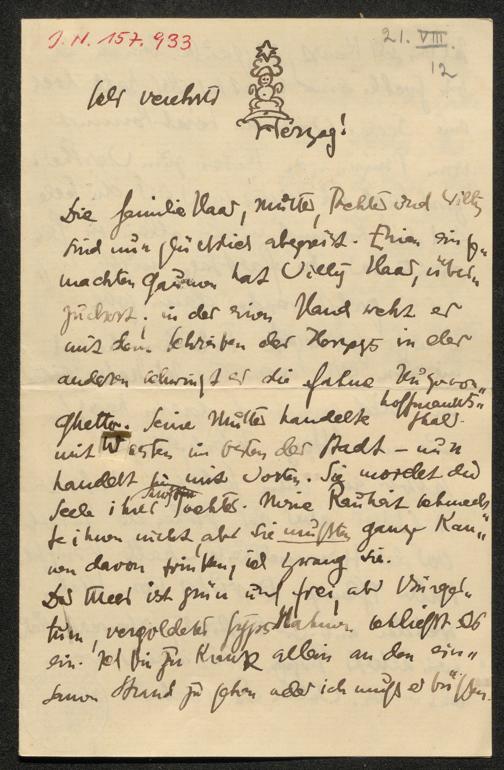 J. N. 157.933
21. VIII.
12
Sehr verehrter
Herzog!
Die Familie Haas, Mutter, Tochter und Willy
sind nun glücklich abgereist. Einen
machten Gaumen hat Willy Haas, über
in der einen Hand er
mit dem Schreiben des Herzogs in der
anderen schwingt er die Fahne, Hugo von„
hoffmanns„
Ghetto. Seine Mutter handelte
thal.
mit Westen im besten der Stadt – nun
handelt sie mit Worten. Sie mordet die
Seele ihrer Tochter. Meine Rauheit schmeck
te ihnen nicht, aber sie mußten ganze Kan„
nen davon trinken, ich zwang sie.
Das Meer ist grün und frei, aber Bürger„
tum, vergoldeter Gyps Rahmen schließt es
ein. Ich bin zu krank allein an den ein„
samen Strand zu gehen oder ich muß es büßen.